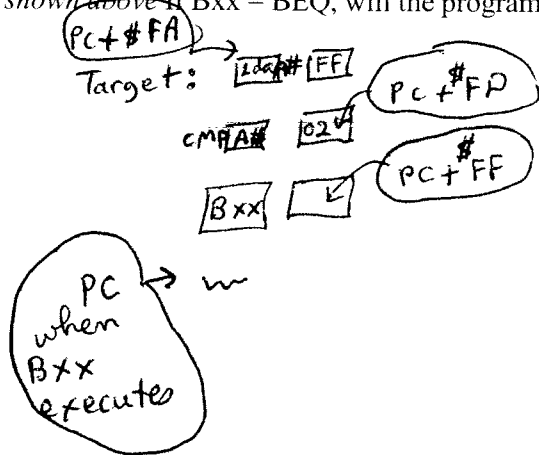 shown above if Bxx = BEQ, will the program
PC + $ FA
Target: ldaA# FF
PC + $FD
CMPA# 02
PC + $FF
Bxx
PC
when
Bxx
executes